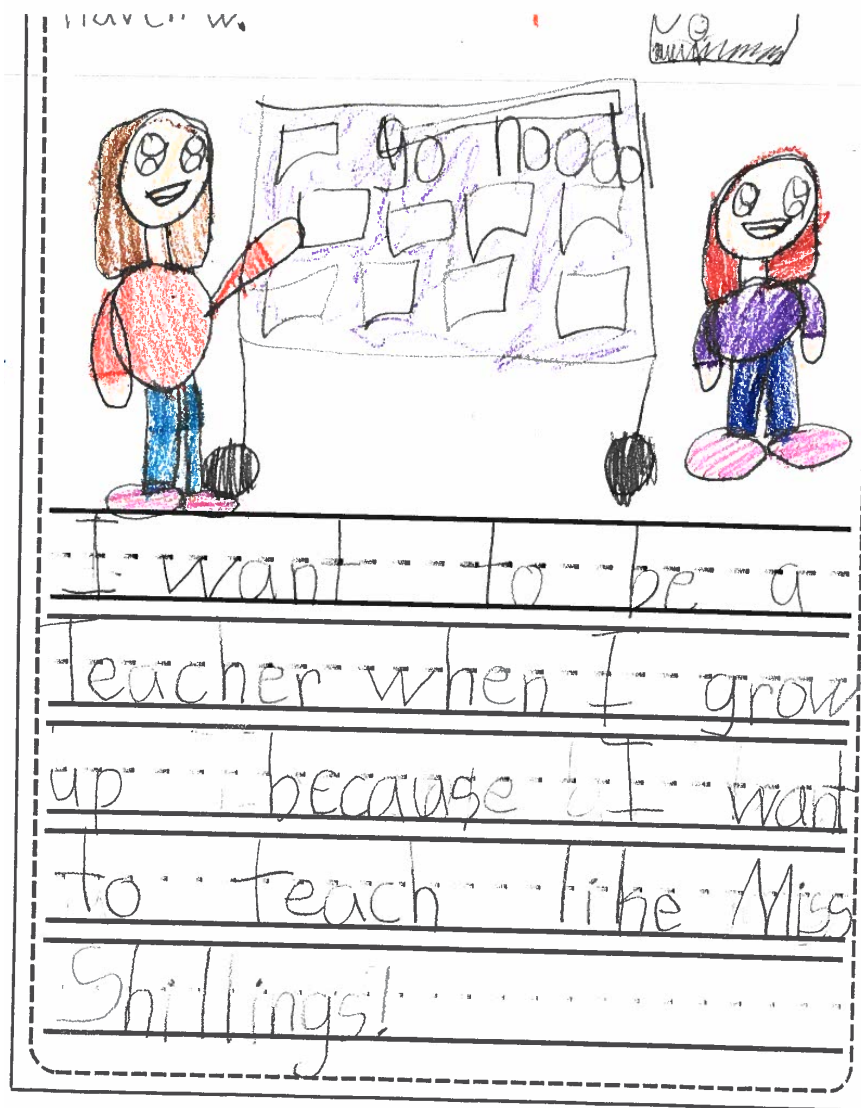 w.
go nood
I want to be a
Teacher when I grow
up because I want
to teach like Miss
Shillings!